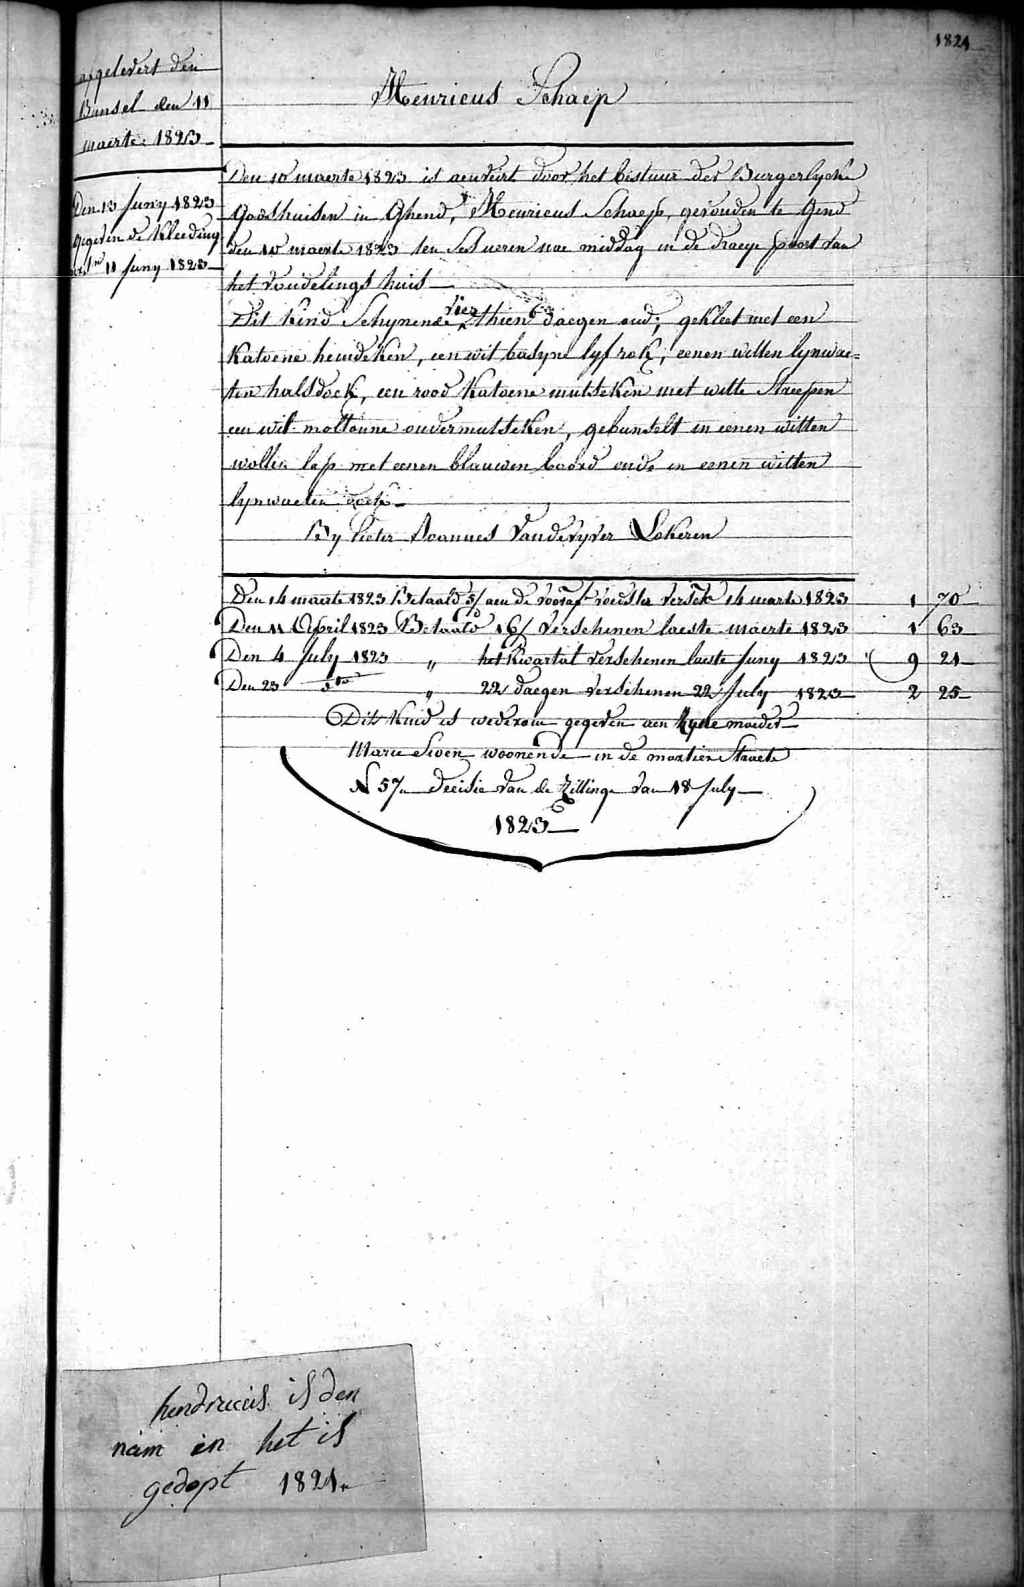 1824
Henricus Schaep
opgelevert den
Bunsel den 11
maerte 1823
Den 13 Juny 1823
gegeven de Kleeding
11 Juny 1823
Den 10 maerte 1823 is aenveirt door het bestuur der Burgerlyche
Godshuisen in Ghend, Henricus Schaep, gevonden te Gend
den 10 maerte 1823 ten ses ueren nae middag in de draeye poort van
het vondelings huis
Dit kind Schynende vier thien daegen oud, gekleet met een
Katoene hemdeken, een wit basyne lyf rok, eenen witten lynwae=
ten halsdoek, een rood Katoene mutseken met witte Streepen
een wit moltonne ondermutseken, gebunselt in eenen witten
wollen lap met eenen blauwen boord ende in eenen witten
lynwaeten doek
By Pieter Joannes Vandevyver Lokeren
Den 14 maerte 1823 Betaald 5/ aen de vooraf voedster 14 marte 1823 1 70
Den 11 April 1823 Betaald 16/ Verschenen laeste maerte 1823 1 63
Den 4 July 1823 " het Kwartal verschenen laeste Juny 1823 9 21
Den 23 dto " 22 daegen verschenen 22 July 1823 2 25
Dit Kind is wederom gegeven aen zyne moeder
Marie woonende in de Straete
N 57 decisie van de Zittinge van 18 July
1823
hendricus is den
nam en het is
gedopt 1821